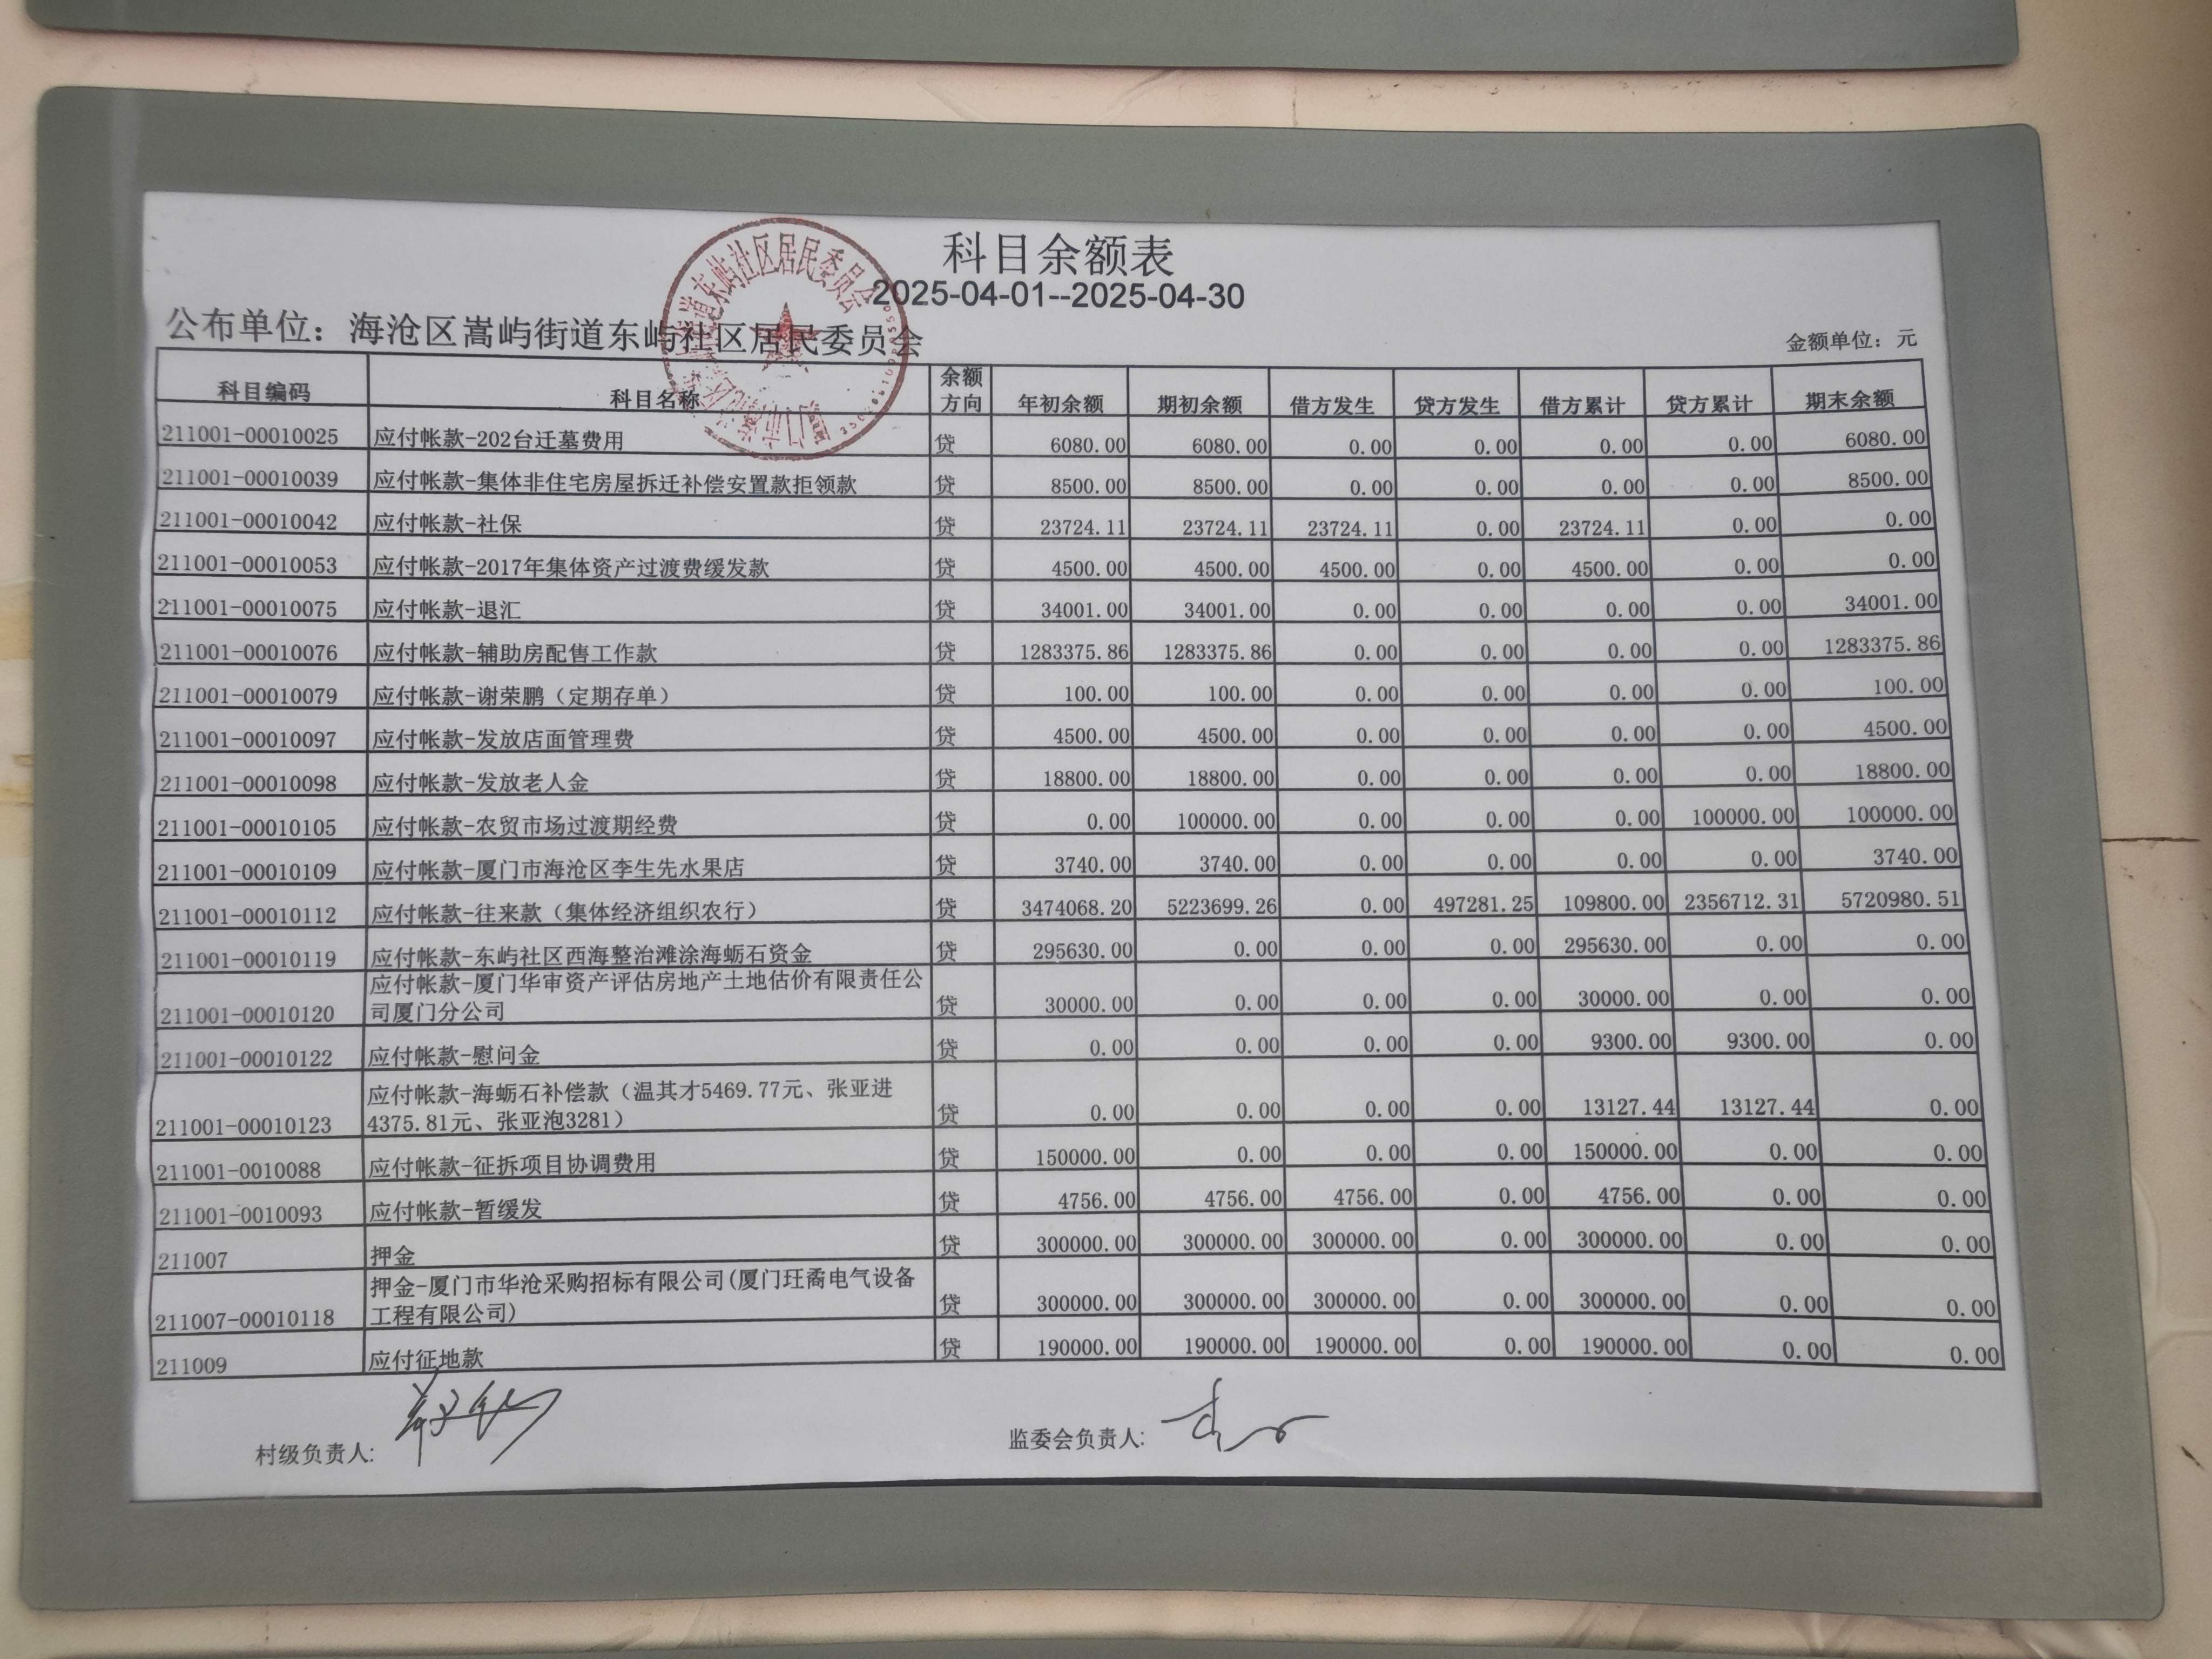 科目余额表
2025-04-01--2025-04-30
公布单位：海沧区嵩屿街道东屿社区居民委员会 金额单位：元
科目编码 科目名称 余额方向 年初余额 期初余额 借方发生 贷方发生 借方累计 贷方累计 期末余额
211001-00010025 应付帐款-202台迁墓费用 贷 6080.00 6080.00 0.00 0.00 0.00 0.00 6080.00
211001-00010039 应付帐款-集体非住宅房屋拆迁补偿安置款拒领款 贷 8500.00 8500.00 0.00 0.00 0.00 0.00 8500.00
211001-00010042 应付帐款-社保 贷 23724.11 23724.11 23724.11 0.00 23724.11 0.00 0.00
211001-00010053 应付帐款-2017年集体资产过渡费缓发款 贷 4500.00 4500.00 4500.00 0.00 4500.00 0.00 0.00
211001-00010075 应付帐款-退汇 贷 34001.00 34001.00 0.00 0.00 0.00 0.00 34001.00
211001-00010076 应付帐款-辅助房配售工作款 贷 1283375.86 1283375.86 0.00 0.00 0.00 0.00 1283375.86
211001-00010079 应付帐款-谢荣鹏（定期存单） 贷 100.00 100.00 0.00 0.00 0.00 0.00 100.00
211001-00010097 应付帐款-发放店面管理费 贷 4500.00 4500.00 0.00 0.00 0.00 0.00 4500.00
211001-00010098 应付帐款-发放老人金 贷 18800.00 18800.00 0.00 0.00 0.00 0.00 18800.00
211001-00010105 应付帐款-农贸市场过渡期经费 贷 0.00 100000.00 0.00 0.00 0.00 100000.00 100000.00
211001-00010109 应付帐款-厦门市海沧区李生先水果店 贷 3740.00 3740.00 0.00 0.00 0.00 0.00 3740.00
211001-00010112 应付帐款-往来款（集体经济组织农行） 贷 3474068.20 5223699.26 0.00 497281.25 109800.00 2356712.31 5720980.51
211001-00010119 应付帐款-东屿社区西海整治滩涂海蛎石资金 贷 295630.00 0.00 0.00 0.00 295630.00 0.00 0.00
应付帐款-厦门华审资产评估房地产土地估价有限责任公
211001-00010120 司厦门分公司 贷 30000.00 0.00 0.00 0.00 30000.00 0.00 0.00
211001-00010122 应付帐款-慰问金 贷 0.00 0.00 0.00 0.00 9300.00 9300.00 0.00
应付帐款-海蛎石补偿款（温其才5469.77元、张亚进
211001-00010123 4375.81元、张亚泡3281） 贷 0.00 0.00 0.00 0.00 13127.44 13127.44 0.00
211001-0010088 应付帐款-征拆项目协调费用 贷 150000.00 0.00 0.00 0.00 150000.00 0.00 0.00
211001-0010093 应付帐款-暂缓发 贷 4756.00 4756.00 4756.00 0.00 4756.00 0.00 0.00
211007 押金 贷 300000.00 300000.00 300000.00 0.00 300000.00 0.00 0.00
押金-厦门市华沧采购招标有限公司(厦门玨矞电气设备
211007-00010118 工程有限公司) 贷 300000.00 300000.00 300000.00 0.00 300000.00 0.00 0.00
211009 应付征地款 贷 190000.00 190000.00 190000.00 0.00 190000.00 0.00 0.00
村级负责人: 监委会负责人: